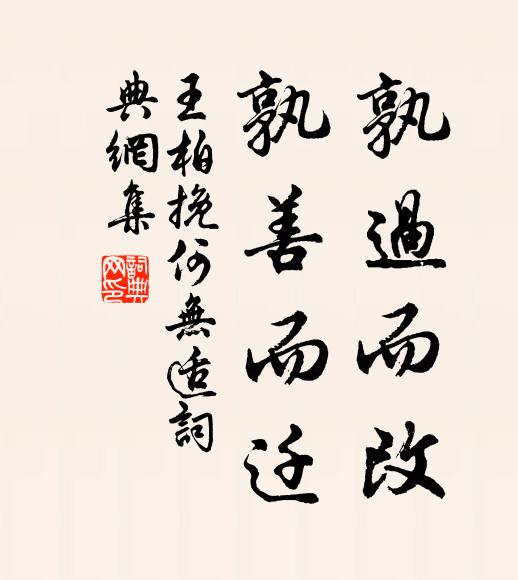 孰過而改
孰善而迁
王柏挽何無适詞
典網集
詞典网印